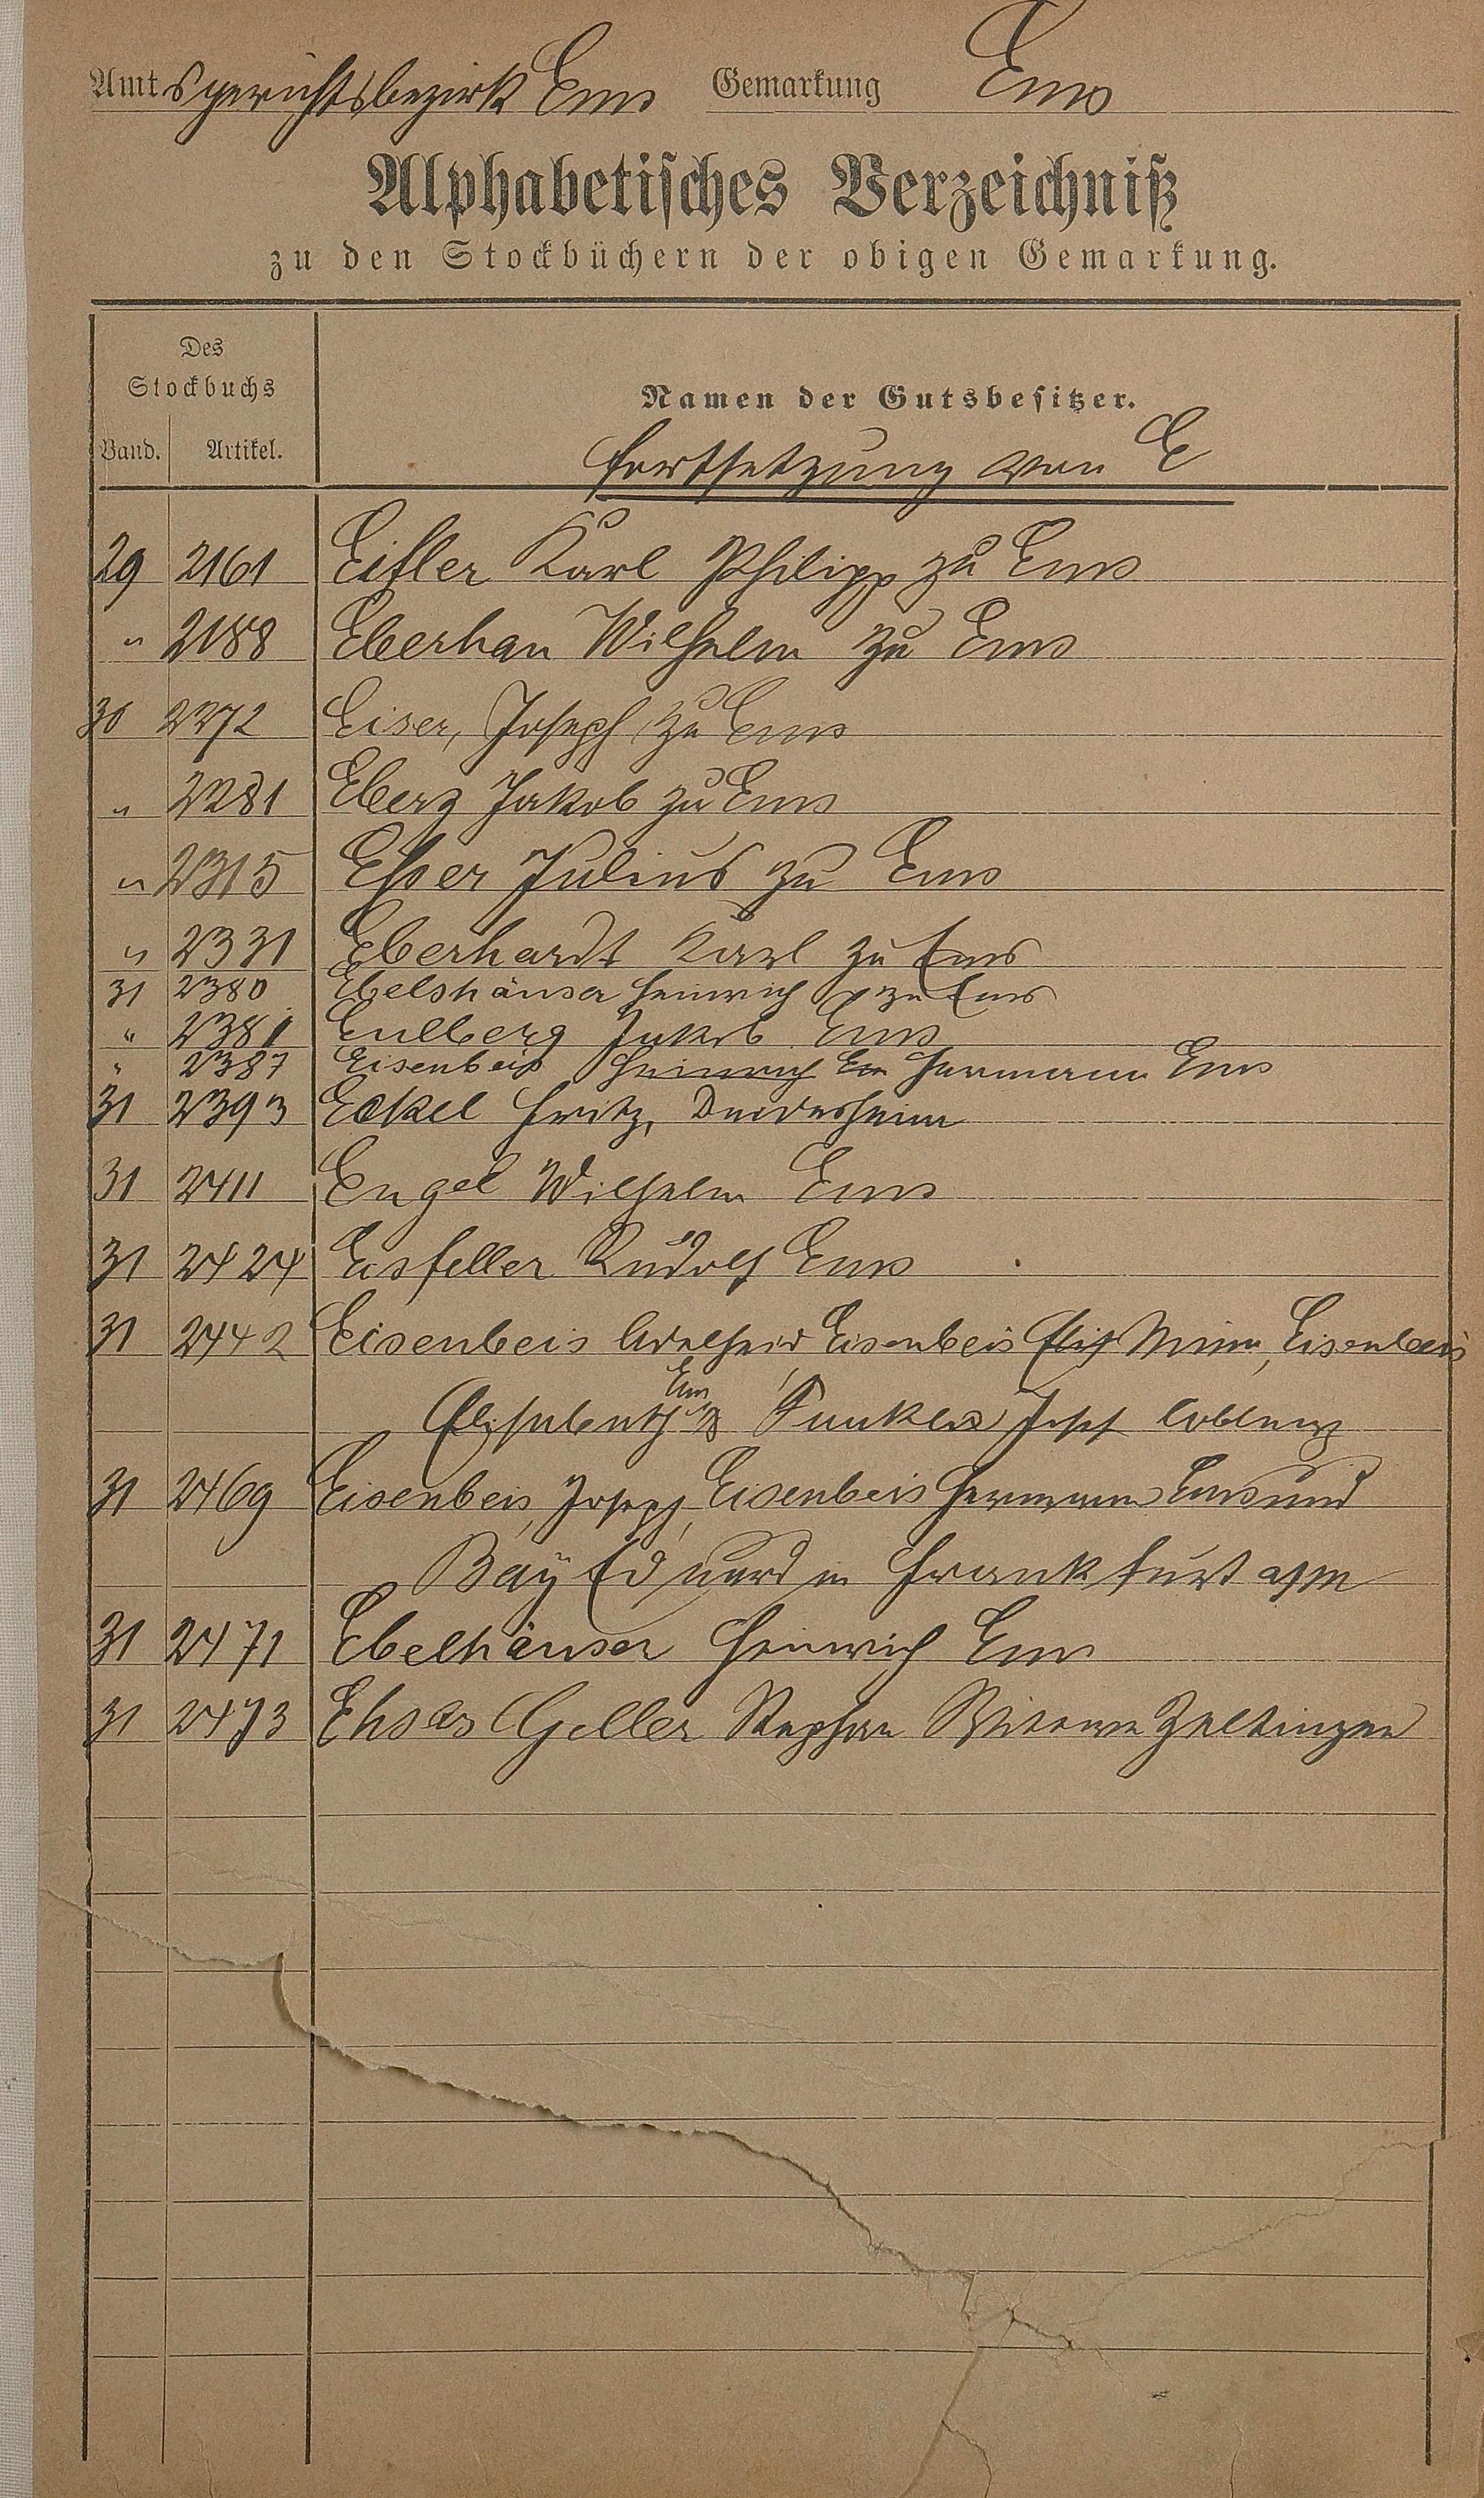 Amtsgerichtsbezirk Ems Gemarkung Ems
Alphabetisches Verzeichniß
zu den Stockbüchern der obigen Gemarkung.
Des Stockbuchs
Namen der Gutsbesitzer.
Band. Artikel.
Fortsetzung von E
29 2161 Eifler Karl Philipp zu Ems
" 2188 Eberhan Wilhelm zu Ems
30 2272 Eiser, Joseph zu Ems
" 2281 Eberz Jakob zu Ems
" 2315 Esser Julius zu Ems
" 2331 Eberhardt Karl zu Ems
31 2380 Ebelshäuser Heinrich zu Ems
" 2381 Eulberg Jakob Ems
" 2387 Eisenbeis Heinrich Em Hermann Ems
31 2393 Eckel Fritz, Deidesheim
31 2411 Engel Wilhelm Ems
31 2424 Eisfeller Rudolf Ems
31 2442 Eisenbeis Adelheid Eisenbeis Minna, Eisenbeis
Ems
Elisabeth Funkler Josef Coblenz
31 2469 Eisenbeis, Joseph, Eisenbeis Hermann Ems und
Bay Eduard in Frankfurt a/m
31 2471 Ebelhäuser Heinrich Ems
31 2473 Ehses Geller Stephan Witwe Zeltingen